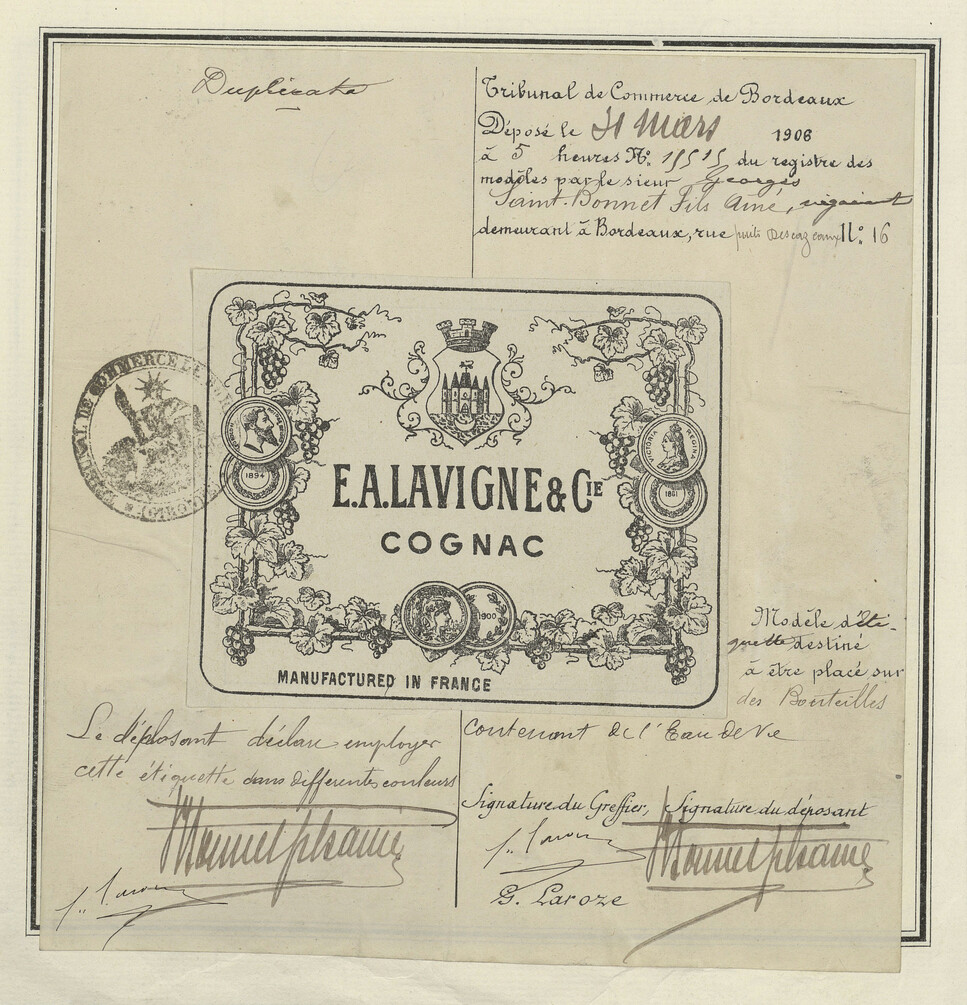 Duplicata
Tribunal de Commerce de Bordeaux
Déposé le 31 Mars 1906
à 5 heures N°. 15515 du registre des
modèles par le sieur Georges
Saint-Bonnet Fils Ainé, négociant
demeurant à Bordeaux, rue puits Descazeaux N° 16
TRIBUNAL DE COMMERCE DE
VICTORIA REGINA
1894
1861
E.A.LAVIGNE & CIE
COGNAC
1900
MANUFACTURED IN FRANCE
Modèle d'éti-
quette destiné
à être placé sur
des Bouteilles
contenant de l'Eau de Vie
Le déposant déclare employer
cette étiquette dans differentes couleurs
Signature du Greffier, Signature du déposant
G. Laroze